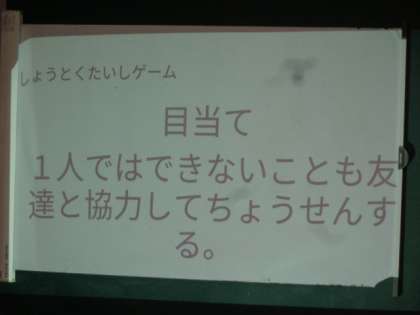 しょうとくたいしゲーム
目当て
１人ではできないことも友
達と協力してちょうせんす
る。